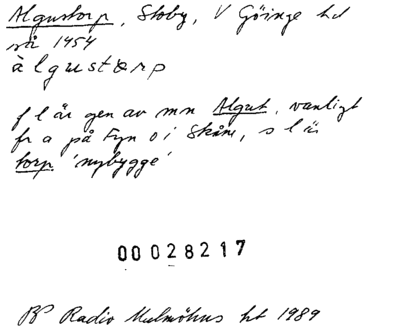 Algustorp, Stoby, V Göinge hd
så 1454
àlgustɶrp
f l är gen av mn Algut, vanligt
fr a på Fyn o i Skåne, s l är
torp 'nybygge'
00028217
BP Radio Malmöhus ht 1989